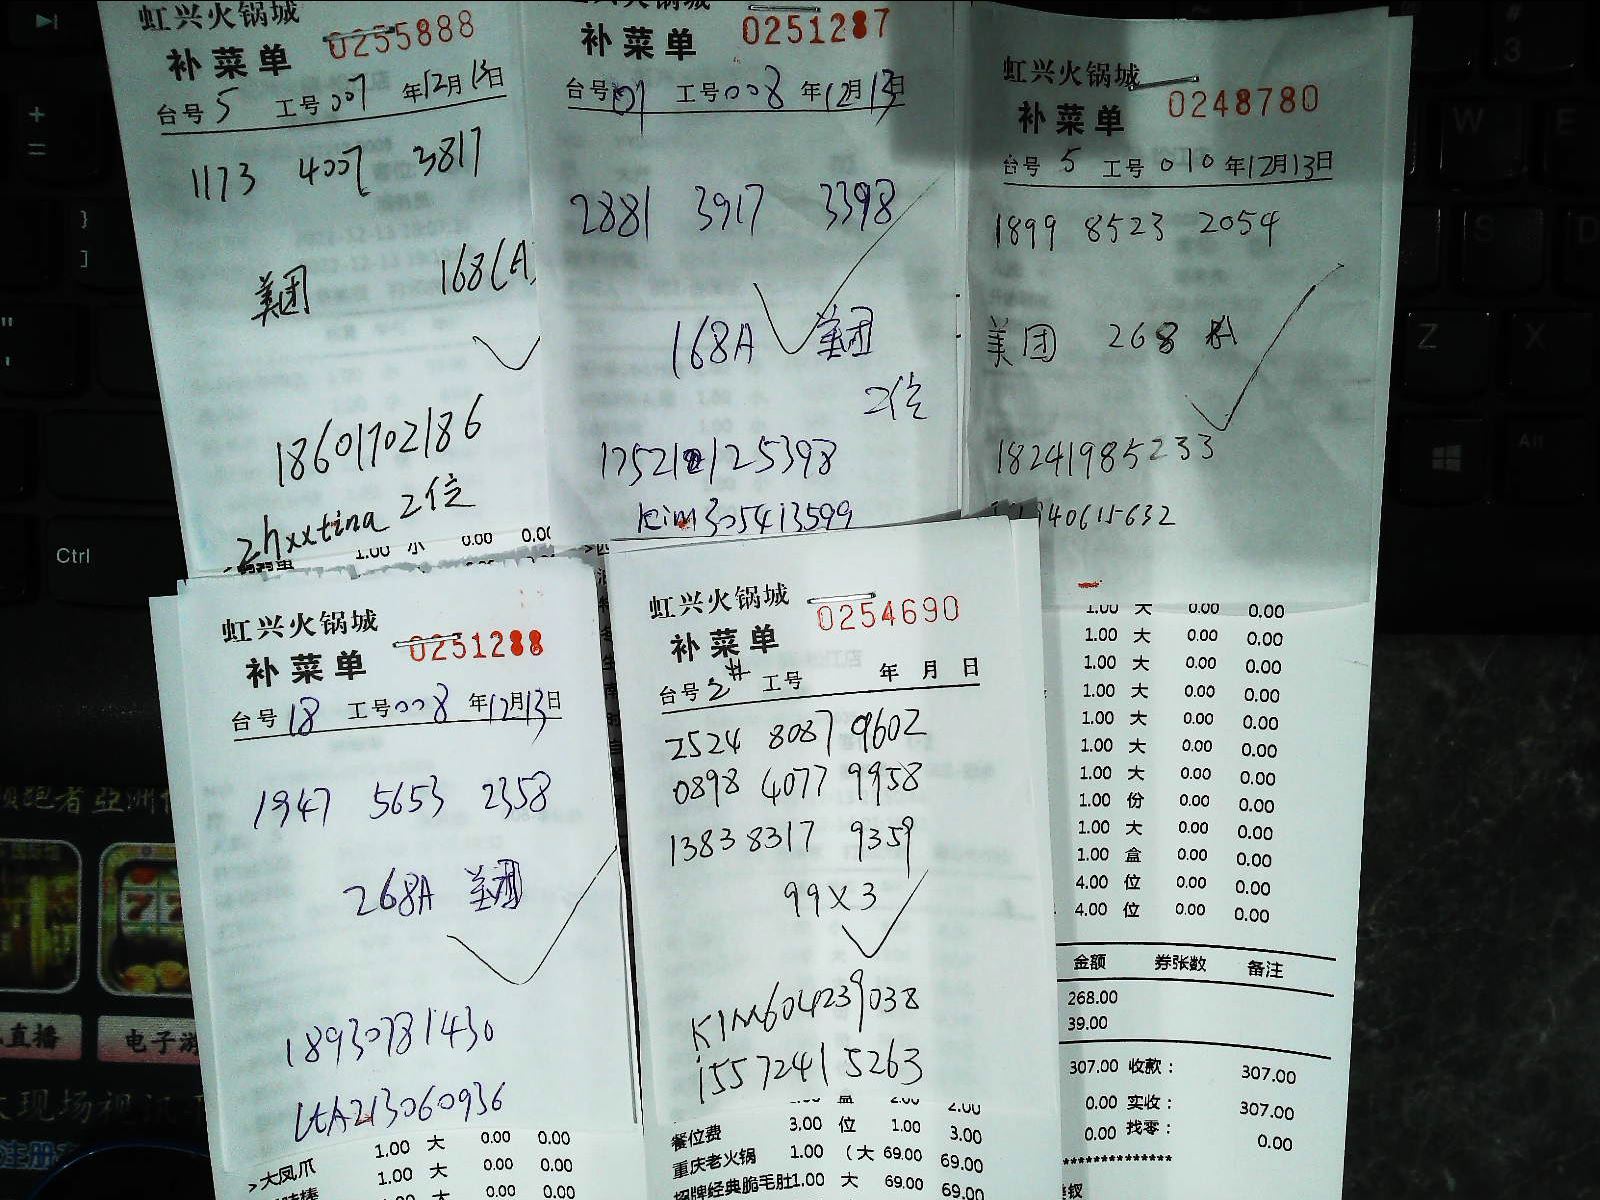 虹兴火锅城
补菜单 0255888
台号 5 工号 007 年12月13日
1173 4007 3817
美团 168(A)
18601702186
zhxxtina 2位
1.00 小 0.00 0.00
0251287
补菜单
台号 01 工号 008 年12月13日
2881 3917 3398
168A 美团
2位
Kim305413599
虹兴火锅城
补菜单 0248780
台号 5 工号 010 年12月13日
1899 8523 2054
美团 268 A
18241985233
1.00 大 0.00 0.00
1.00 大 0.00 0.00
1.00 大 0.00 0.00
1.00 大 0.00 0.00
1.00 大 0.00 0.00
1.00 大 0.00 0.00
1.00 大 0.00 0.00
1.00 份 0.00 0.00
1.00 大 0.00 0.00
1.00 盒 0.00 0.00
4.00 位 0.00 0.00
4.00 位 0.00 0.00
金额 券张数 备注
268.00
39.00
307.00 收款： 307.00
0.00 实收： 307.00
0.00 找零： 0.00
**************
虹兴火锅城
补菜单 0251288
台号 18 工号 008 年12月13日
1947 5653 2358
268A 美团
18930781430
LtA213060936
1.00 大 0.00 0.00
>大凤爪 1.00 大 0.00 0.00
虹兴火锅城
补菜单 0254690
台号 2# 工号 年 月 日
2524 8087 9602
0898 4077 9958
1383 8317 9359
99X3
KIM604239038
15572415263
餐位费 3.00 位 1.00 3.00
重庆老火锅 1.00 (大 69.00 69.00
招牌经典脆毛肚1.00 大 69.00 69.00
Ctrl
W
E
S
D
Z
X
Alt
#
3
+
=
}
]
"
'
直播
电子游